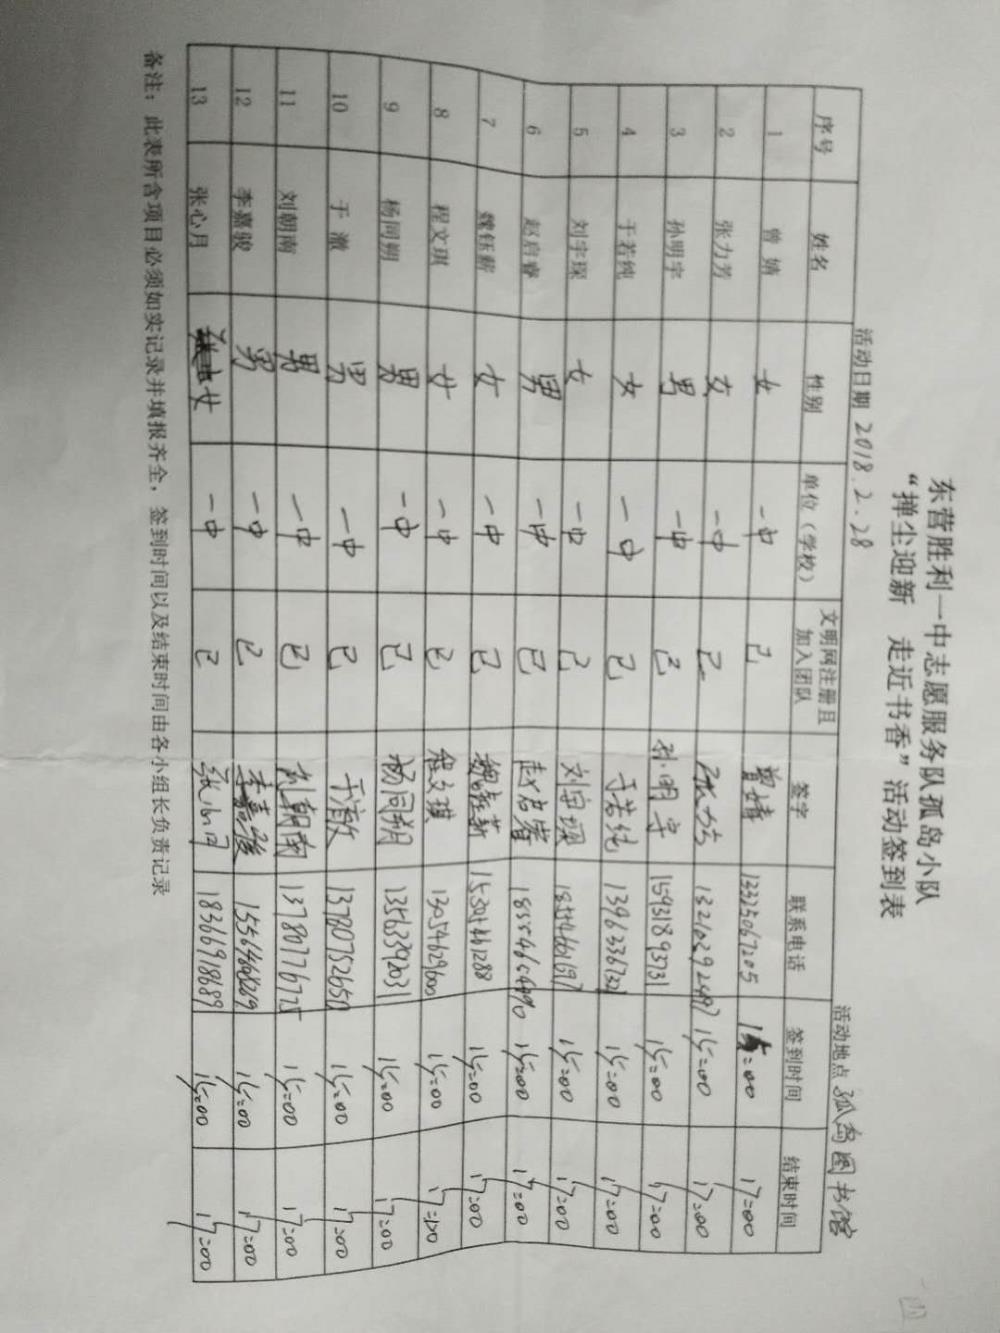 东营胜利一中志愿服务队孤岛小队
“掸尘迎新 走近书香”活动签到表
活动日期 2018.2.28 活动地点 孤岛图书馆
序号 姓名 性别 单位（学校） 文明网注册且加入团队 签字 联系电话 签到时间 结束时间
1 曾婧 女 一中 已 曾婧 13325067205 15:00 17:00
2 张力芳 女 一中 已 13210292497 15:00 17:00
3 孙明宇 男 一中 已 孙明宇 15931893731 15:00 17:00
4 于若纯 女 一中 已 于若纯 15:00 17:00
5 刘宇琛 女 一中 已 刘宇琛 18554661697 15:00 17:00
6 赵启睿 男 一中 已 赵启睿 15:00 17:00
7 魏钰薪 女 一中 已 魏钰薪 15304461288 15:00 17:00
8 程文琪 女 一中 已 程文琪 13054629600 15:00 17:00
9 杨同朔 男 一中 已 杨同朔 13563392031 15:00 17:00
10 于澈 男 一中 已 于澈 13780752650 15:00 17:00
11 刘朝南 男 一中 已 刘朝南 13780776725 15:00 17:00
12 李嘉骏 男 一中 已 李嘉骏 15:00 17:00
13 张心月 女 一中 已 张心月 18366918689 15:00 17:00
备注：此表所含项目必须如实记录并填报齐全，签到时间以及结束时间由各小组长负责记录